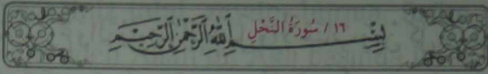 ١٦ / سُورَةُ النَّحْلِ
بِسْمِ اللَّهِ الرَّحْمَٰنِ الرَّحِيمِ